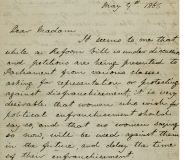 May 9th 1866.
Dear Madam
It seems to me that
while a Reform Bill is under discussion
and petitions are being presented to
Parliament from various classes
asking for representation or protesting
against disfranchisement, it is very
desirable that women who wish for
political enfranchisement should
say so and that women saying
so now, will be used against them
in the future and delay the time
of their enfranchisement